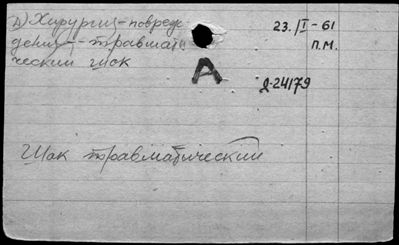 Д) Хирургия-повреж
дения-травмати
ческий шок
23./I-61
П.М.
А
Д-24179
Шок травматический